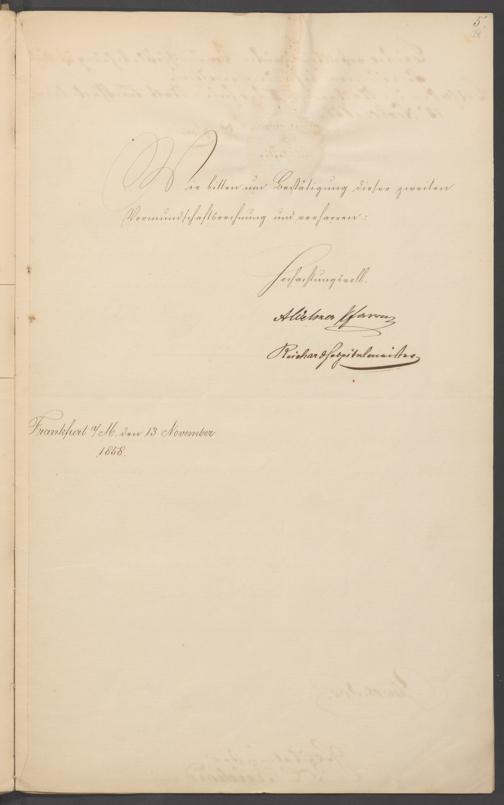 5
Wir bitten um Bestätigung dieser zweiten
Vormundschaftsrechnung und verharren:
Hochachtungsvoll.
Pfarrer
Reichard Hospitalmeister
Frankfurt a/M. den 13 November
1858.